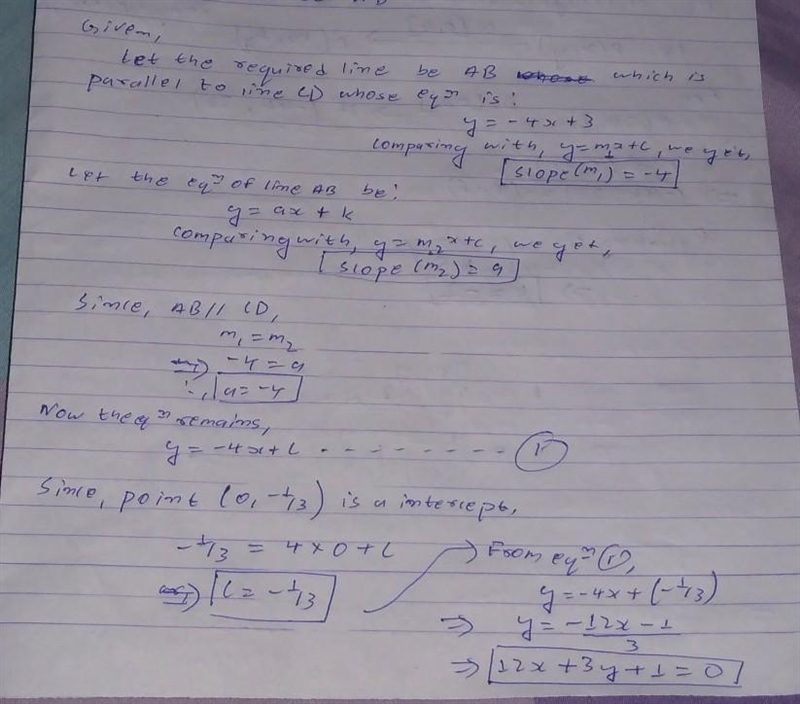 Given,
Let the required line be AB which is
parallel to line CD whose eqn is:
y = -4x + 3
comparing with, y = m₁x + c, we get,
slope (m₁) = -4
Let the eqn of line AB be:
y = ax + k
comparing with, y = m₂x + c, we get,
slope (m₂) = a
Since, AB // CD,
m₁ = m₂
⇒ -4 = a
∴, a = -4
Now the eqn remains,
y = -4x + c - - - - - - - - - (1)
Since, point (0, -1/3) is a intercept,
-1/3 = 4 × 0 + c
⇒ c = -1/3
→ From eqn (1),
y = -4x + (-1/3)
⇒ y = (-12x - 1)/3
⇒ 12x + 3y + 1 = 0